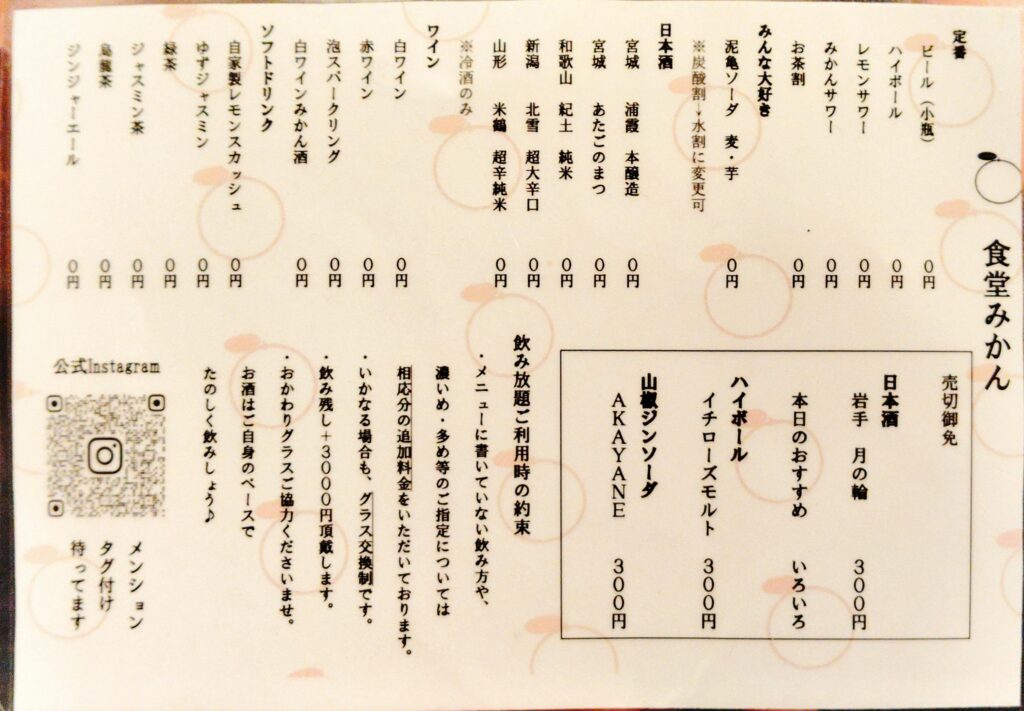 食堂みかん
定番
ビール（小瓶） 0円
ハイボール 0円
レモンサワー 0円
みかんサワー 0円
お茶割 0円
みんな大好き
泥亀ソーダ 麦・芋 0円
※炭酸割→水割に変更可
日本酒
宮城 浦霞 本醸造 0円
宮城 あたごのまつ 0円
和歌山 紀土 純米 0円
新潟 北雪 超大辛口 0円
山形 米鶴 超辛純米 0円
※冷酒のみ
ワイン
白ワイン 0円
赤ワイン 0円
泡スパークリング 0円
白ワインみかん酒 0円
ソフトドリンク
自家製レモンスカッシュ 0円
ゆずジャスミン 0円
緑茶 0円
ジャスミン茶 0円
烏龍茶 0円
ジンジャーエール 0円
売切御免
日本酒
岩手 月の輪 300円
本日のおすすめ いろいろ
ハイボール
イチローズモルト 300円
山椒ジンソーダ
AKAYANE 300円
飲み放題ご利用時の約束
・メニューに書いていない飲み方や、
濃いめ・多め等のご指定については
相応分の追加料金をいただいております。
・いかなる場合も、グラス交換制です。
・飲み残し＋3000円頂戴します。
・おかわりグラスご協力くださいませ。
お酒はご自身のペースで
たのしく飲みましょう♪
公式Instagram
メンション
タグ付け
待ってます